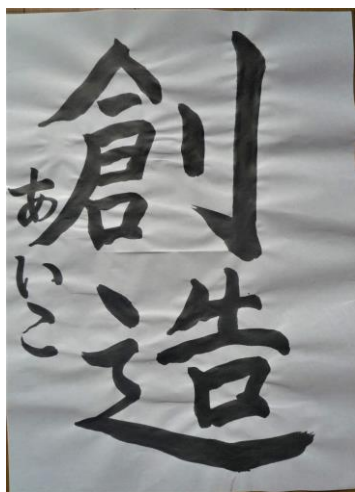 創造
あいこ